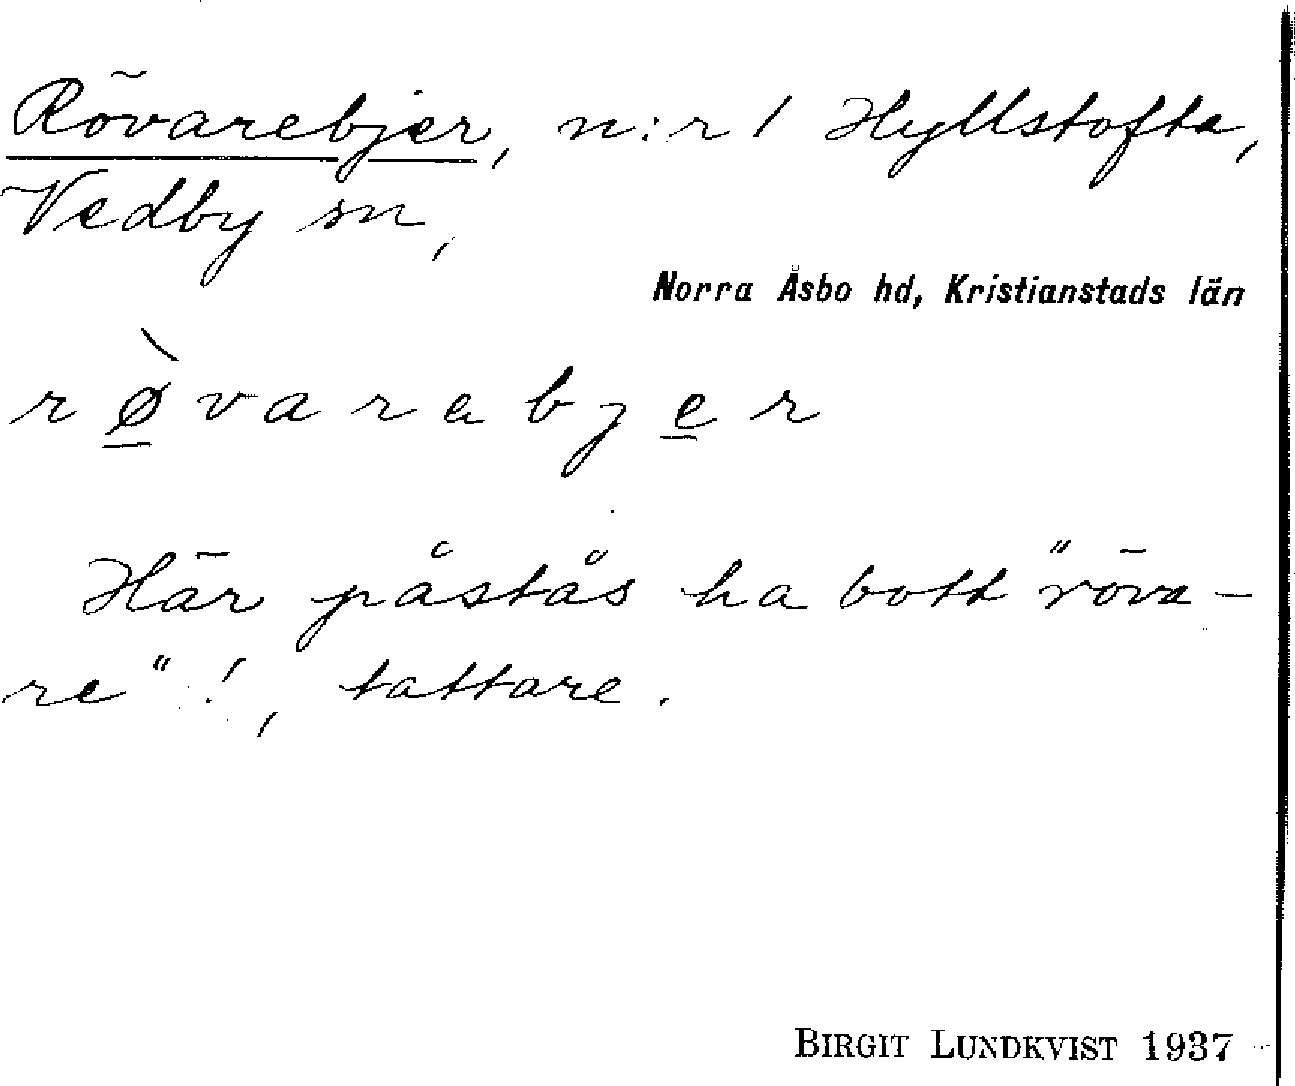 Rövarebjer, n:r 1 Hyllstofta,
Vedby sn,
Norra Åsbo hd, Kristianstads län
rø̲̀varabje̲r
Här påstås ha bott "röva-
re"!, tattare.
BIRGIT LUNDKVIST 1937